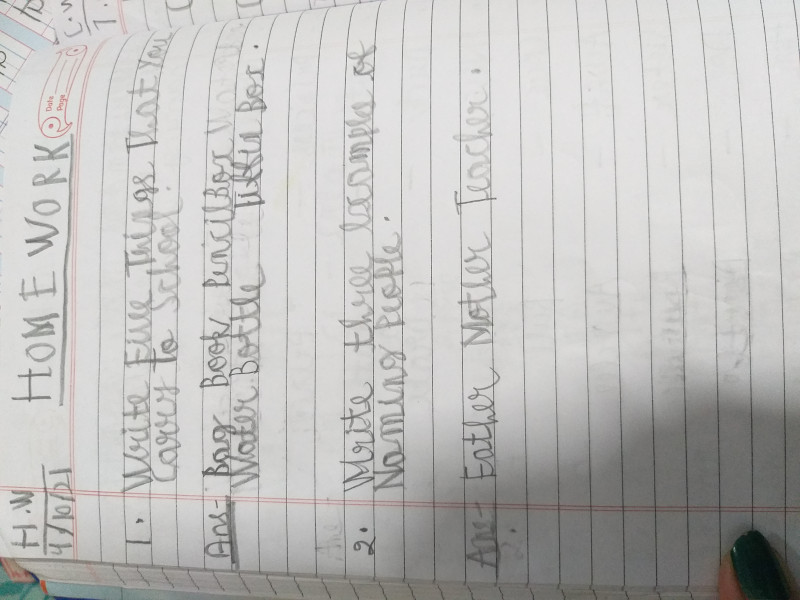 H.W
4/10/21
HOME WORK
Date
Page
1. Write Five Things That You
Carry to School.
Ans- Bag Book, Pencil Box
Water Bottle Tiffin Box.
2. Write three Example of
Naming People.
Ans- Father Mother Teacher.